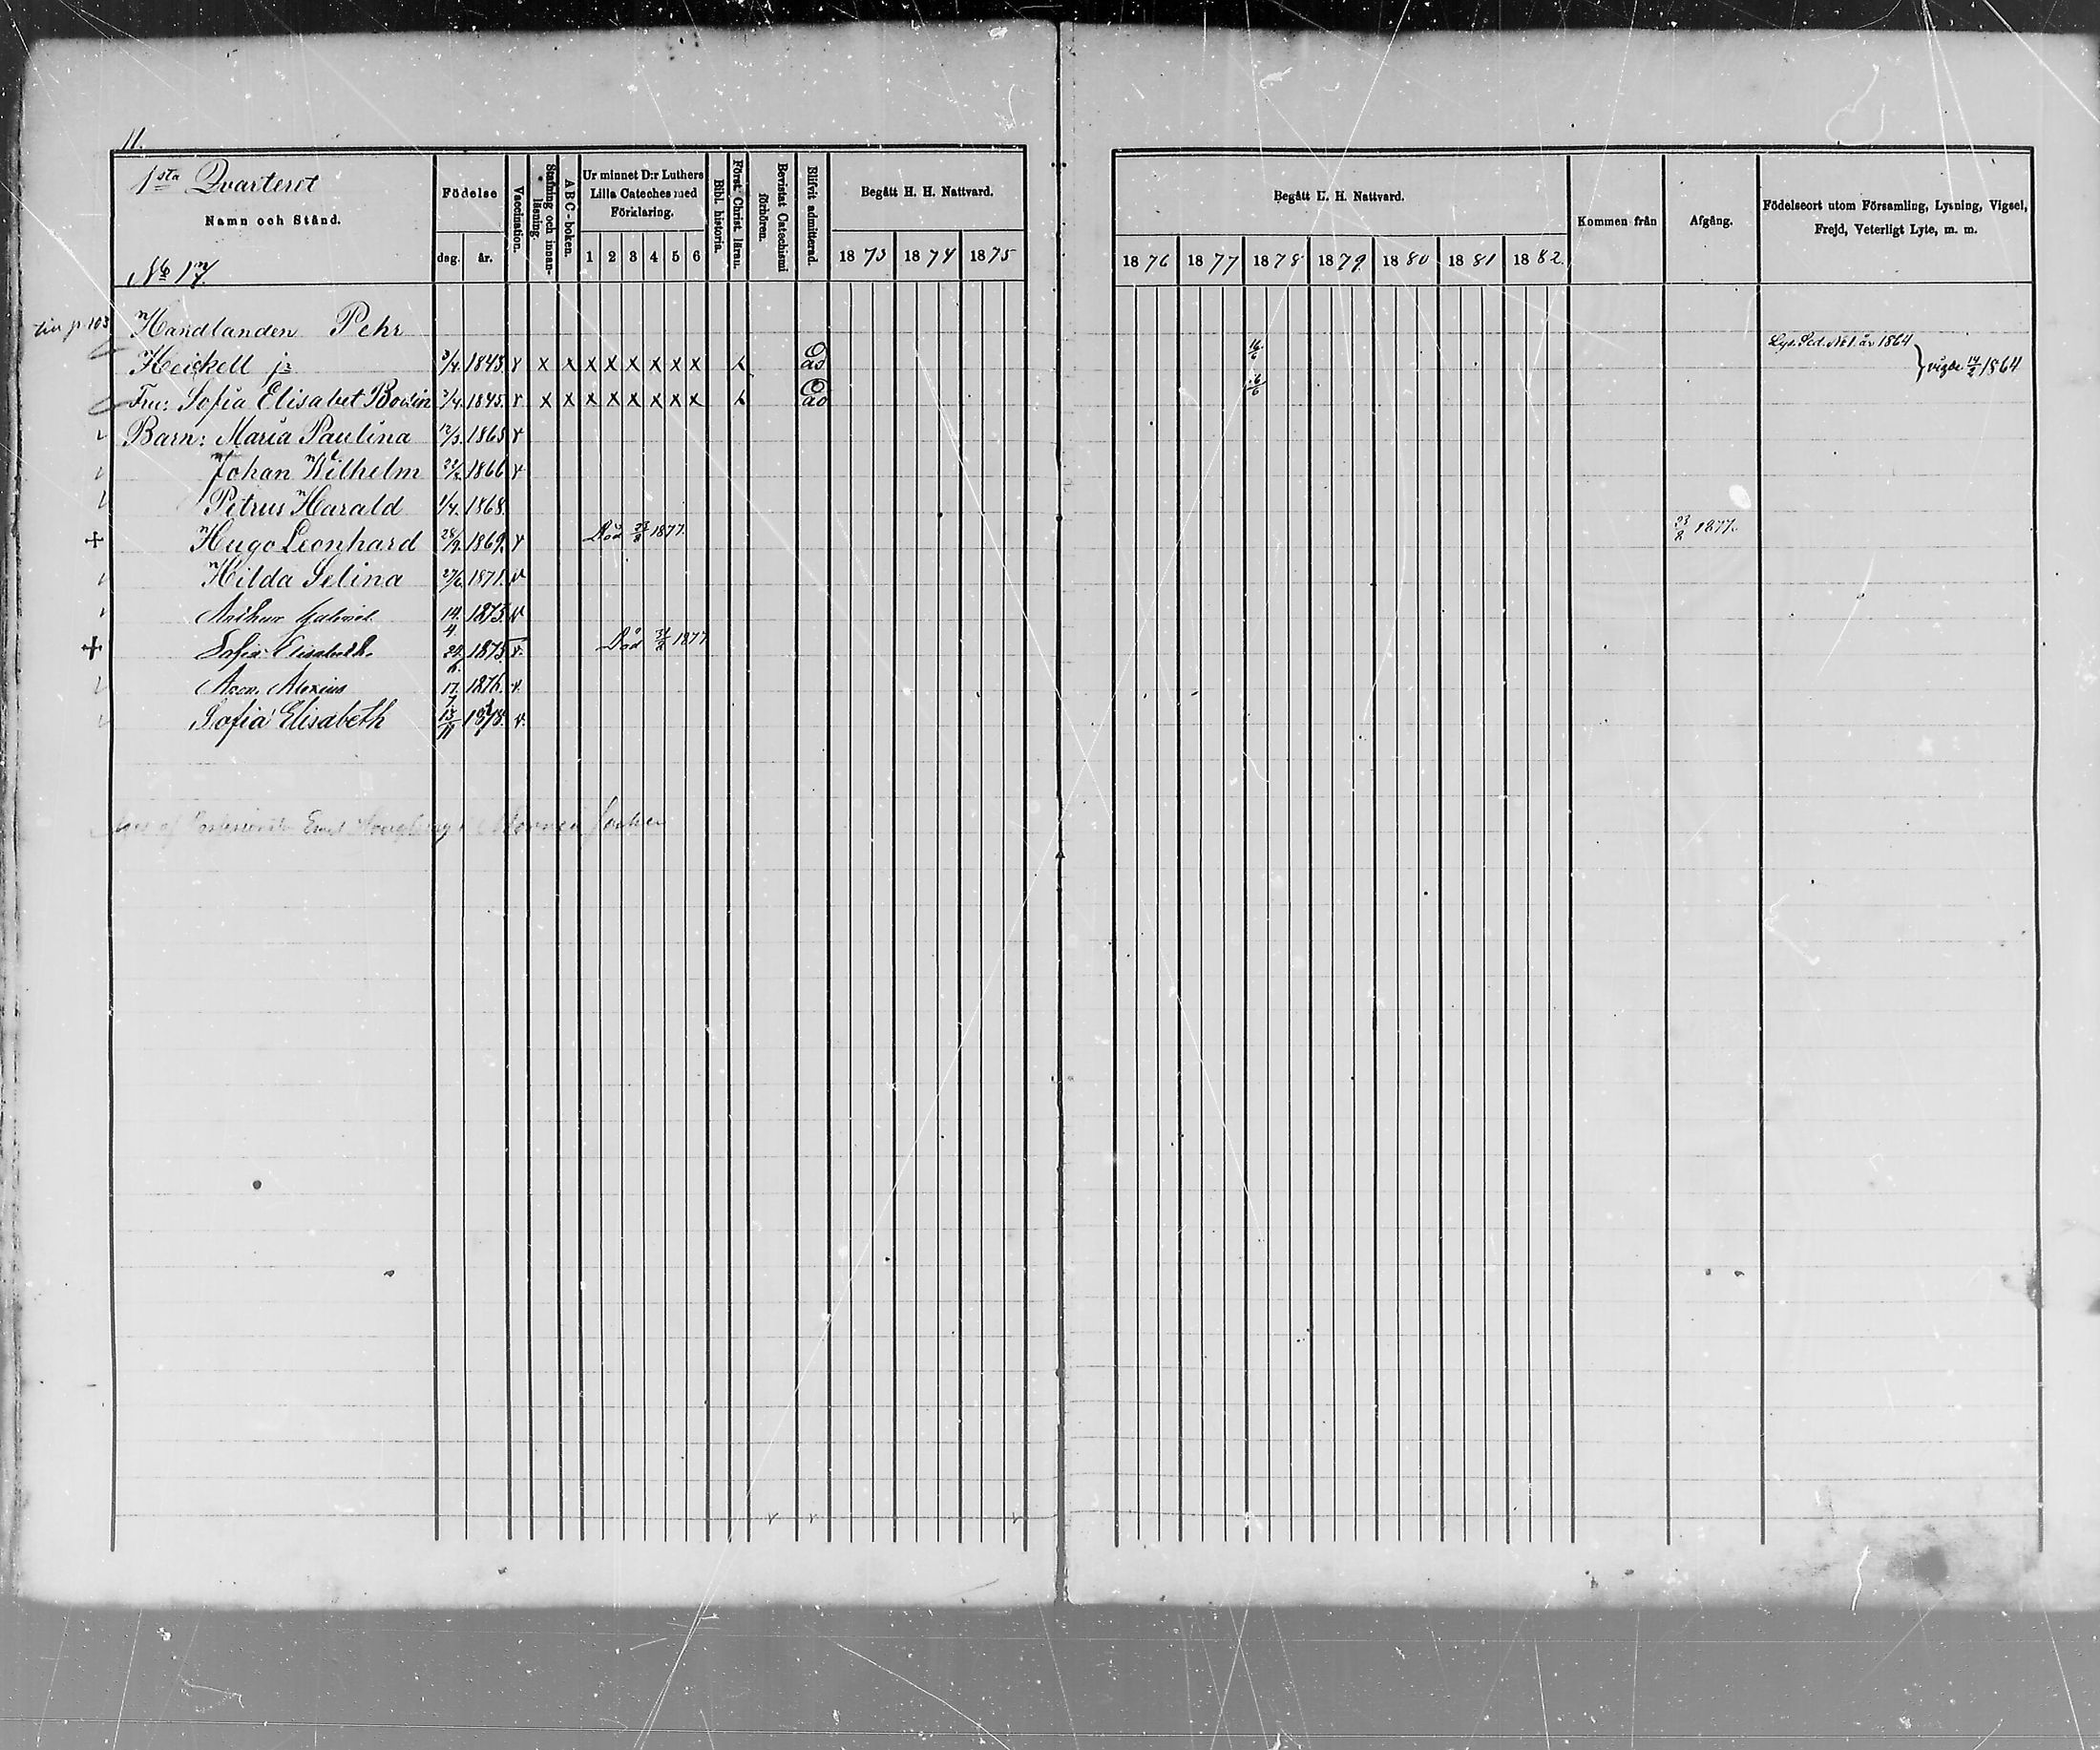 11.
1sta Qvarteret
Namn och Stånd.
No 17.
Födelse
dag. år.
Vaccination.
Stafning och innan-läsning.
A B C-boken.
Ur minnet D:r Luthers Lilla Cateches med Förklaring.
1 2 3 4 5 6
Bibl. historia.
Först. Christ. läran.
Bevistat Catechismi förhören.
Blifvit admitterad.
Begått H. H. Nattvard.
1873 1874 1875
Begått H. H. Nattvard.
1876 1877 1878 1879 1880 1881 1882
Kommen från
Afgång.
Födelseort utom Församling, Lysning, Vigsel, Frejd, Veterligt Lyte, m. m.
p. 103 Handlanden Pehr
Lys. Sed. No 1. år 1864
Heickell jr 3/4. 1843. v x x x x x x x x ad 16/6 vigde 14/2 1864
Fru: Sofia Elisabet Bovin 3/4. 1845. v x x x x x x x x ad 16/6
Barn: Maria Paulina 12/3. 1865 v
Johan Wilhelm 22/2 1866 v
Petrus Harald 1/4. 1868.
+ Hugo Leonhard 28/9. 1869. v Död 23/2 1877. 23/2 1877.
Hilda Selina 27/6. 1871. v
Arthur Gabriel 14/4. 1873. v
+ Sofia Elisabeth. 1875. v. Död 1877
Alexius 17/7. 1876. v.
Sofia Elisabeth 13/11 1878. v.